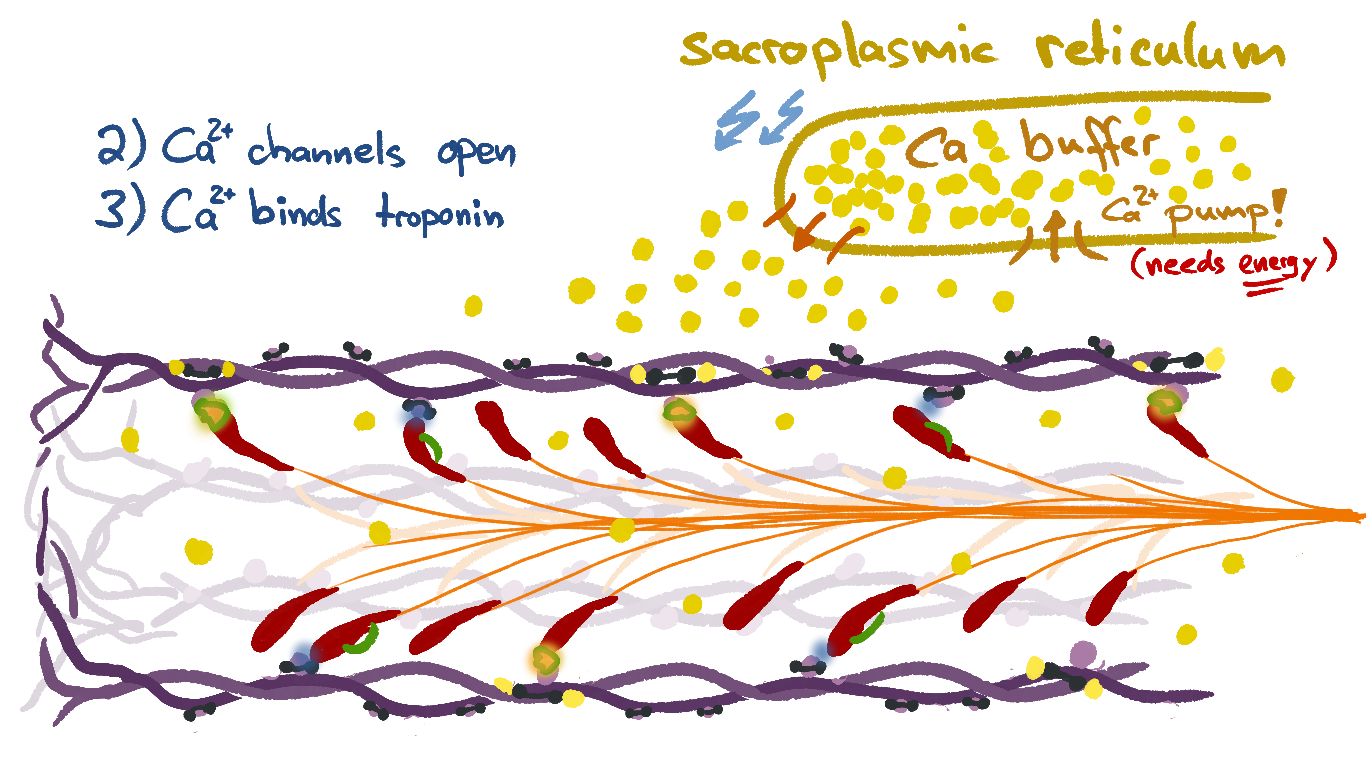 sacroplasmic reticulum
2) Ca²⁺ channels open
3) Ca²⁺ binds troponin
Ca buffer
Ca²⁺ pump!
(needs energy)